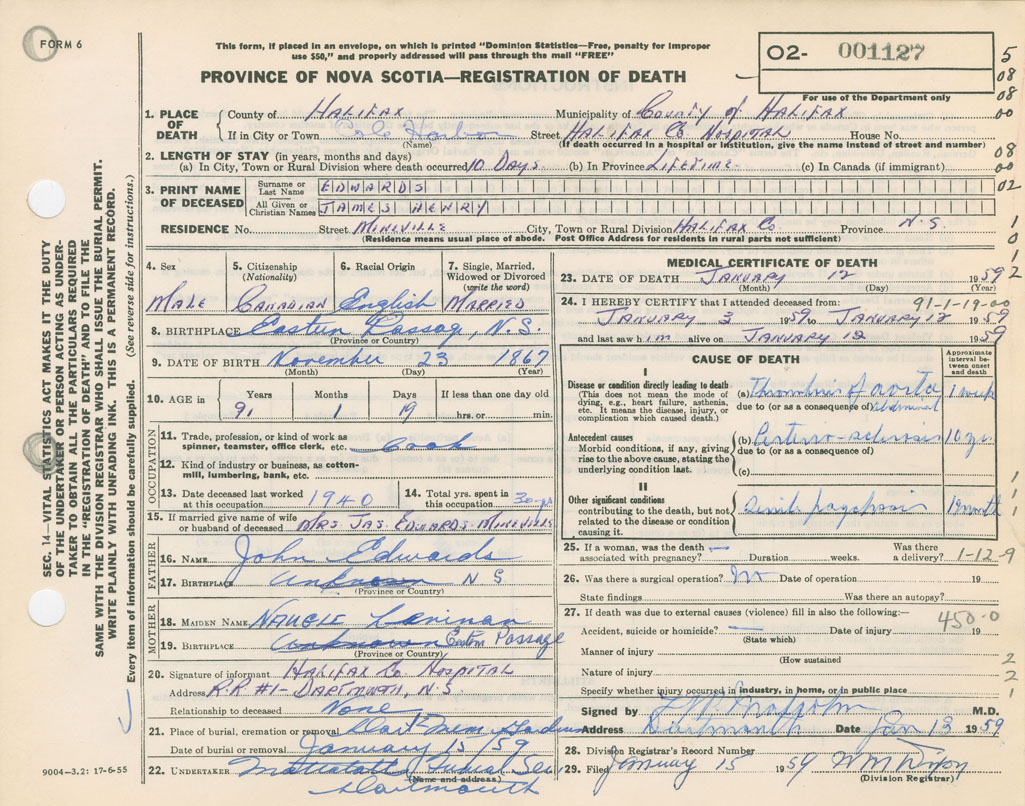 FORM 6
This form, if placed in an envelope, on which is printed "Dominion Statistics—Free, penalty for improper
use $50," and properly addressed will pass through the mail "FREE"
PROVINCE OF NOVA SCOTIA—REGISTRATION OF DEATH
02- 001127
For use of the Department only
5
08
08
00
08
00
02
1
0
1
2
1. PLACE OF DEATH
County of HALIFAX Municipality of COUNTY OF HALIFAX
If in City or Town Cole Harbor Street HALIFAX CO. HOSPITAL House No.
(Name) (If death occurred in a hospital or institution, give the name instead of street and number)
2. LENGTH OF STAY (in years, months and days)
(a) In City, Town or Rural Division where death occurred 10 DAYS (b) In Province LIFETIME (c) In Canada (if immigrant)
3. PRINT NAME OF DECEASED
Surname or Last Name EDWARDS
All Given or Christian Names JAMES HENRY
RESIDENCE No. Street MINEVILLE City, Town or Rural Division HALIFAX CO. Province N.S.
(Residence means usual place of abode. Post Office Address for residents in rural parts not sufficient)
4. Sex 5. Citizenship (Nationality) 6. Racial Origin 7. Single, Married, Widowed or Divorced (write the word)
MALE CANADIAN English MARRIED
8. BIRTHPLACE Eastern Passag, N.S.
(Province or Country)
9. DATE OF BIRTH November 23 1867
(Month) (Day) (Year)
10. AGE in Years Months Days If less than one day old
91 1 19 hrs. or min.
OCCUPATION
11. Trade, profession, or kind of work as spinner, teamster, office clerk, etc. Cook
12. Kind of industry or business, as cotton-mill, lumbering, bank, etc.
13. Date deceased last worked at this occupation 1940 14. Total yrs. spent in this occupation 30 yrs
15. If married give name of wife or husband of deceased MRS JAS. EDWARDS. MINEVILLE
FATHER
16. NAME John Edwards
17. BIRTHPLACE Unknown N S
(Province or Country)
MOTHER
18. MAIDEN NAME
19. BIRTHPLACE Unknown Eastern Passage
(Province or Country)
20. Signature of informant HALIFAX CO HOSPITAL
Address R.R #1- DARTMOUTH, N.S.
Relationship to deceased None
21. Place of burial, cremation or removal Dart Mem Gardens
Date of burial or removal January 15/59
22. UNDERTAKER
(Name and address)
Dartmouth
9004-3.2: 17-6-55
MEDICAL CERTIFICATE OF DEATH
23. DATE OF DEATH JANUARY 12 1959
(Month) (Day) (Year)
24. I HEREBY CERTIFY that I attended deceased from: 91-1-19-00
JANUARY 3 1959 to JANUARY 12 1959
and last saw him alive on JANUARY 12 1959
CAUSE OF DEATH
Approximate interval between onset and death
I
Disease or condition directly leading to death
(This does not mean the mode of dying, e.g., heart failure, asthenia, etc. It means the disease, injury, or complication which caused death.)
(a) Thrombis of aorta 1 week
due to (or as a consequence of) abdominal
Antecedent causes
Morbid conditions, if any, giving rise to the above cause, stating the underlying condition last.
(b) Arterio-sclerosis 10 yrs
due to (or as a consequence of)
(c)
II
Other significant conditions
contributing to the death, but not related to the disease or condition causing it.
Senile
25. If a woman, was the death associated with pregnancy? — Duration weeks. Was there a delivery? 1-12-9
26. Was there a surgical operation? No Date of operation 19
State findings Was there an autopsy?
27. If death was due to external causes (violence) fill in also the following:—
450-0
Accident, suicide or homicide? — Date of injury 19
(State which)
Manner of injury
(How sustained
Nature of injury
Specify whether injury occurred in industry, in home, or in public place
1
1
1
2
2
1
Signed by M.D.
Address Dartmouth Date Jan 13 1959
28. Division Registrar's Record Number
29. Filed January 15 1959 WM Dixon
(Division Registrar)
SEC. 14—VITAL STATISTICS ACT MAKES IT THE DUTY
OF THE UNDERTAKER OR PERSON ACTING AS UNDER-
TAKER TO OBTAIN ALL THE PARTICULARS REQUIRED
IN THE "REGISTRATION OF DEATH" AND TO FILE THE
SAME WITH THE DIVISION REGISTRAR WHO SHALL ISSUE THE BURIAL PERMIT.
WRITE PLAINLY WITH UNFADING INK. THIS IS A PERMANENT RECORD.
Every item of information should be carefully supplied. (See reverse side for instructions.)